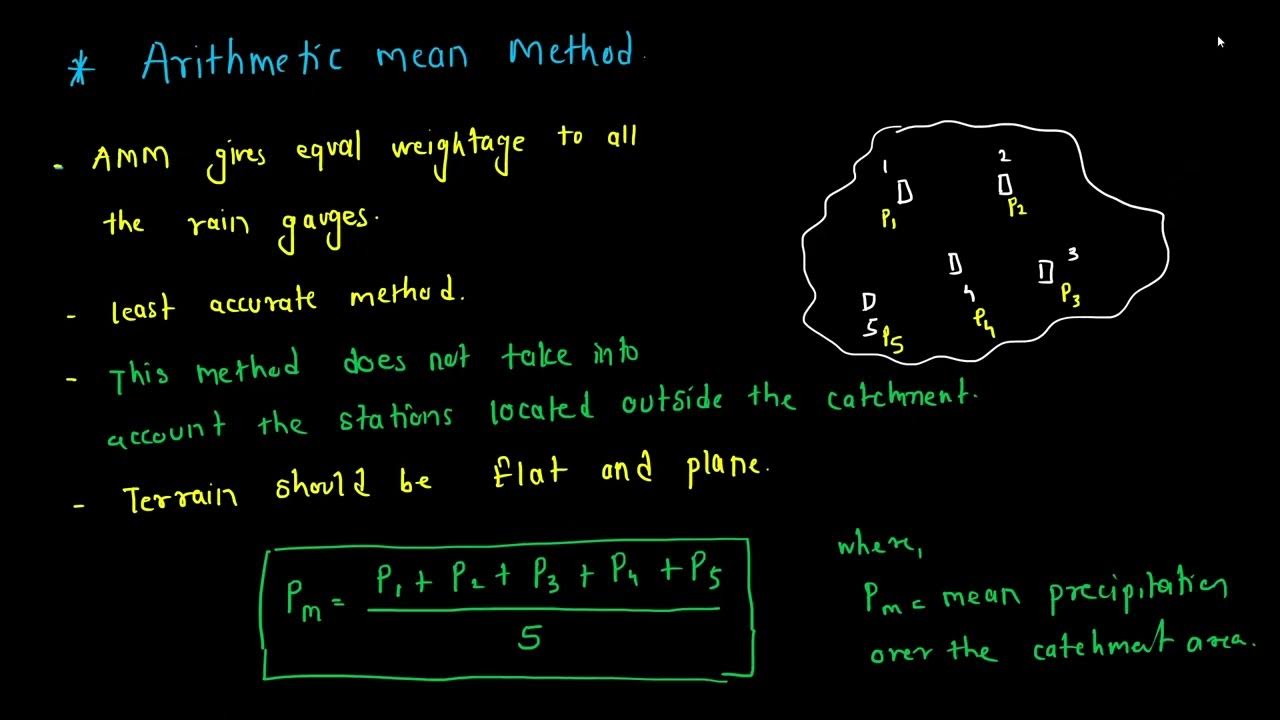 * Arithmetic mean method.
- AMM gives equal weightage to all
the rain gauges.
- least accurate method.
- This method does not take into
account the stations located outside the catchment.
- Terrain should be flat and plane.
1
P1
2
P2
3
P3
4
P4
5
P5
Pm = P1 + P2 + P3 + P4 + P5
5
where,
Pm = mean precipitation
over the catchment area.